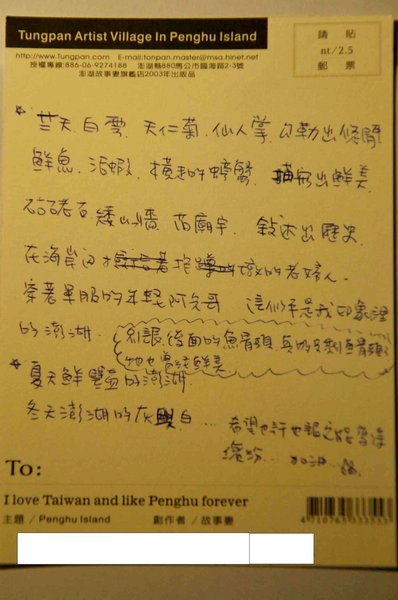 Tungpan Artist Village In Penghu Island
http://www.Tungpan.com E-mail:tonpan.master@msa.hinet.net
授權專線:886-06-9274188 澎湖縣880馬公市臨海路2-3號
澎湖故事妻旗艦店2003年出版品
請貼
nt/2.5
郵票
藍天.白雲.天仁菊.仙人掌.勾勒出悠閒
鮮魚.活蝦.橫走的螃蟹.描寫出鮮美
硓𥑮石矮山牆.古廟宇.敘述出歷史
在海岸
的老婦人.
穿著軍服的年輕阿兵哥 這些年是我印象裡
的澎湖.
別誤後面的魚骨頭,真的只剩魚骨頭
牠也曾經鮮美
夏天鮮豔的澎湖
冬天澎湖的灰 白...
希望也許也
繽紛...
To:
I love Taiwan and like Penghu forever
主題 / Penghu Island 創作者 / 故事妻